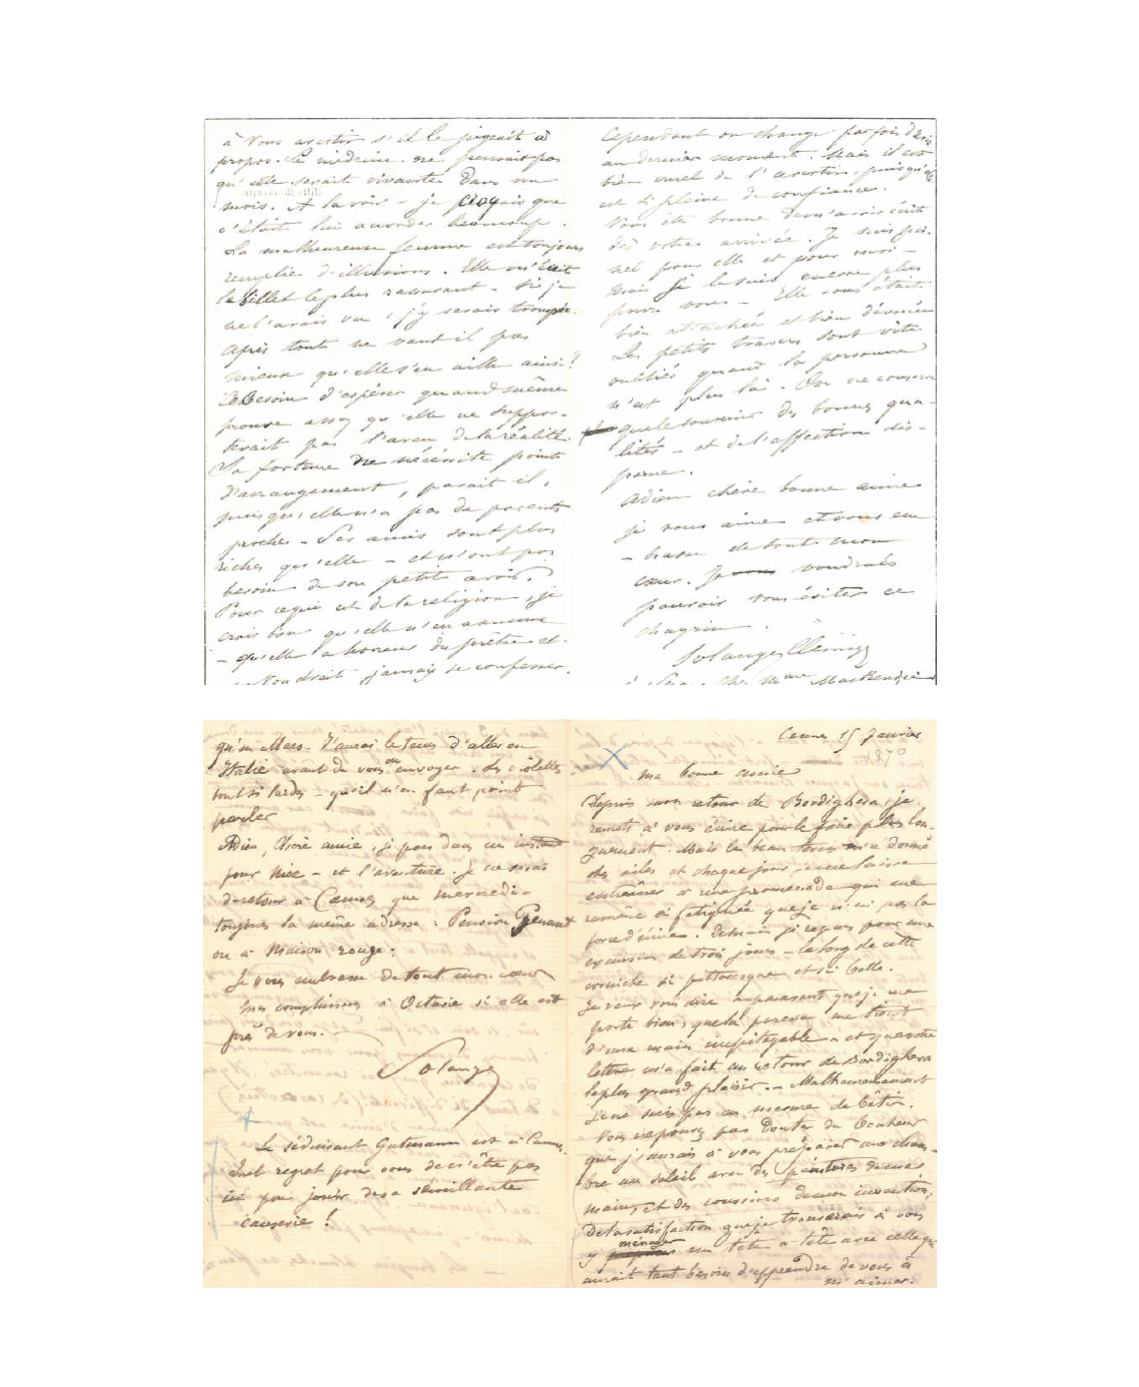 à vous avertir s'il le jugeait à
propos. Le médecin ne pensait pas
qu'elle serait vivante dans un
mois. A la voir - je croyais que
c'était lui accorder beaucoup.
La malheureuse femme est toujours
remplie d'illusions. Elle m'écrit
le billet le plus rassurant. Si je
ne l'avais vu j'y serais trompée.
Après tout ne vaut il pas
mieux qu'elle s'en aille ainsi?
Le besoin d'espérer quand même
prouve assez qu'elle ne suppor-
terait pas l'aveu de la réalité.
Sa fortune ne nécessite point
d'arrangement, parait il,
puisqu'elle n'a pas de parents
proches - Ses amis sont plus
riches qu'elle - et n'ont pas
besoin de son petit avoir.
Pour ce qui est de la religion, je
crois bien qu'elle n'en a aucune
- qu'elle a horreur du prêtre et
ne voudrait jamais se confesser.
Cependant on change parfois
au dernier moment. Mais il est
bien cruel de l'avertir, puisqu'elle
est si pleine de confiance.
Vous êtes bonne de m'avoir écrit
dès votre arrivée. Je suis pei-
née pour elle et pour
mais je le suis encore plus
pour vous - Elle vous était
bien attachée et bien dévouée
Les petits travers sont vite
oubliés quand la personne
n'est plus là. On ne conserve
que le souvenir des bonnes qua-
lités - et de l'affection dis-
parue.
Adieu chère bonne amie
je vous aime et vous em
-brasse de tout mon
cœur. Je voudrais
pouvoir vous éviter ce
chagrin.
Solange Clésinger
chez Mme MacKenzie
qu'en Mars. J'aurai le tems d'aller en
Italie avant de vous en envoyer. Les violettes
sont si laides - qu'il n'en faut point
parler
Adieu, chère amie, je pars dans un instant
pour Nice - et l'aventure. Je ne serai
de retour à Cannes que mercredi -
toujours la même adresse: Pension
ou à Maison rouge.
Je vous embrasse de tout mon cœur
Mes complimens à Octavie si elle est
près de vous.
Solange
Le séduisant Gutmann est à Cannes.
Quel regret pour vous de n'être pas
ici pour jouir de sa sémillante
causerie!
Cannes 15 Janvier
1870
Ma bonne amie
Depuis mon retour de Bordighera, je
remets à vous écrire pour le faire plus lon-
guement. Mais le beau tems m'a donné
des ailes et chaque jour je me laisse
entraîner à une promenade qui me
ramène si fatiguée que je n'ai pas la
force d'écrire. Demain je repars pour une
excursion de trois jours - le long de cette
corniche si pittoresque et si belle.
Je veux vous dire auparavant que je me
porte bien, que la paresse me tient
d'une main impitoyable - et que votre
lettre m'a fait au retour de Bordighera
le plus grand plaisir. - Malheureusement
je ne suis pas en mesure de bâtir.
Vous n'épousez pas doute du bonheur
que j'aurais à vous préparer une cham-
bre au soleil avec des peintures de mes
mains, et des coussins de mon invention;
De la satisfaction que je trouverais à vous
ménager
y un tête à tête avec celle qui
aurait tant besoin d'apprendre de vous à
m'aimer.